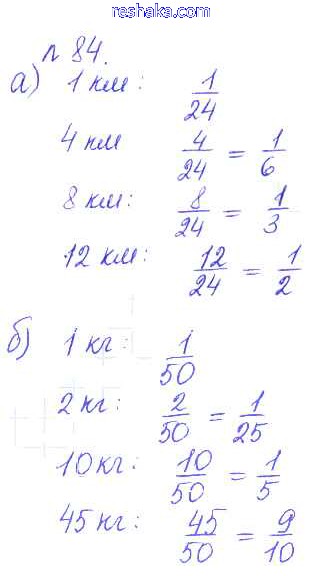 www.reshaka.com
п 84.
а) 1 км: 1/24
4 км 4/24 = 1/6
8 км: 8/24 = 1/3
12 км: 12/24 = 1/2
б) 1 кг: 1/50
2 кг: 2/50 = 1/25
10 кг: 10/50 = 1/5
45 кг: 45/50 = 9/10